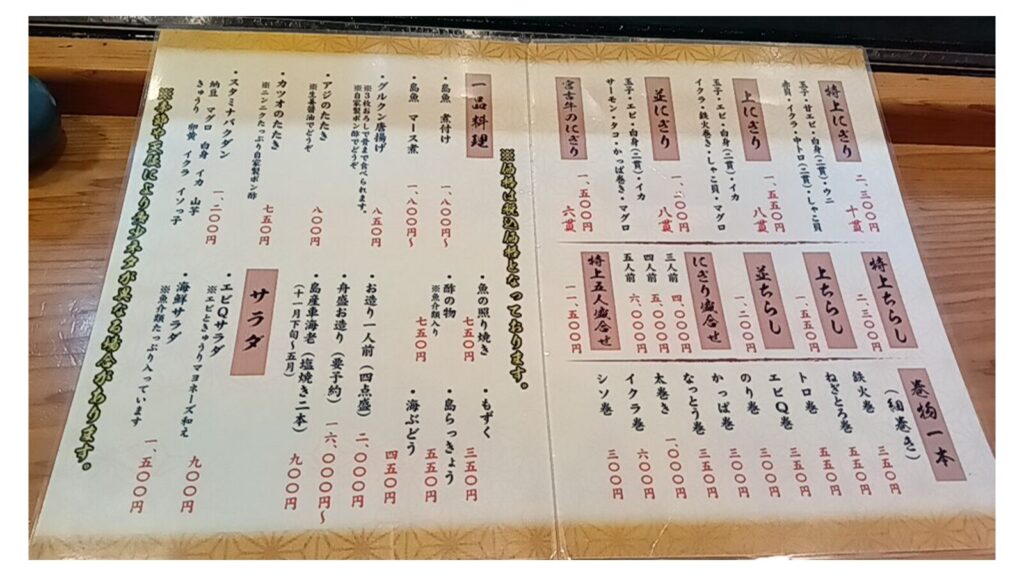 特上にぎり 二、三〇〇円 十貫
玉子・甘エビ・白身(二貫)・ウニ
赤貝・イクラ・中トロ(二貫)・しゃこ貝
上にぎり 一、五五〇円 八貫
玉子・エビ・白身(二貫)・イカ
イクラ・鉄火巻き・しゃこ貝・マグロ
並にぎり 一、二〇〇円 八貫
玉子・エビ・白身(二貫)・イカ
サーモン・タコ・かっぱ巻き・マグロ
宮古牛のにぎり 一、五〇〇円 六貫
特上ちらし 二、三〇〇円
上ちらし 一、五五〇円
並ちらし 一、二〇〇円
にぎり盛合せ
三人前 四、〇〇〇円
四人前 五、〇〇〇円
五人前 六、〇〇〇円
特上五人盛合せ 一一、五〇〇円
巻物一本
(細巻き) 三五〇円
鉄火巻 三五〇円
ねぎとろ巻 五五〇円
トロ巻 五五〇円
エビQ巻 三五〇円
のり巻 三〇〇円
かっぱ巻 三〇〇円
なっとう巻 三五〇円
太巻き 一、〇〇〇円
イクラ巻 六〇〇円
シソ巻 三〇〇円
※価格は税込価格となっております。
一品料理
・島魚 煮付け 一、八〇〇円〜
・島魚 マース煮 一、八〇〇円〜
・グルクン唐揚げ 八五〇円
※3枚おろしで骨まで食べられます。
※自家製ポン酢でどうぞ
・アジのたたき 八〇〇円
※生姜醤油でどうぞ
・カツオのたたき 七五〇円
※ニンニクたっぷり自家製ポン酢
・スタミナバクダン 一、二〇〇円
納豆 マグロ 白身 イカ 山芋
きゅうり 卵黄 イクラ イソっ子
・魚の照り焼き 七五〇円
・酢の物 七五〇円
※魚介類入り
・もずく 三五〇円
・島らっきょう 五五〇円
・海ぶどう 四五〇円
・お造り一人前(四点盛) 二、〇〇〇円
・舟盛お造り(要予約) 一六、〇〇〇円〜
・島産車海老(塩焼き二本) 九〇〇円
(十一月下旬〜五月)
サラダ
・エビQサラダ 九〇〇円
※エビときゅうりマヨネーズ和え
・海鮮サラダ 一、五〇〇円
※魚介類たっぷり入っています
※季節や天候により多少ネタが異なる場合があります。